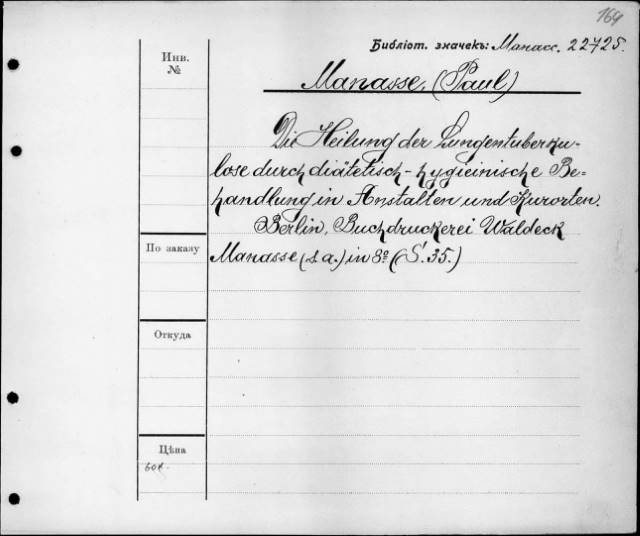 164
Библіот. значекъ: Манасс. 22725.
Инв.
№
Manasse, (Paul)
Die Heilung der Lungentuberku-
lose durch diätetisch-hygieinische Be-
handlung in Anstalten und Kurorten.
Berlin, Buchdruckerei Waldeck
По заказу
Manasse (s. a.) in 8º (S. 35.)
Откуда
Цѣна
60 к.